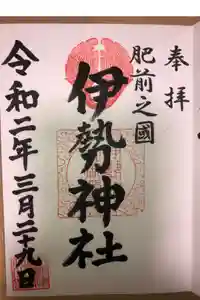 奉拝
肥前之國
伊勢神社
令和二年三月二十九日